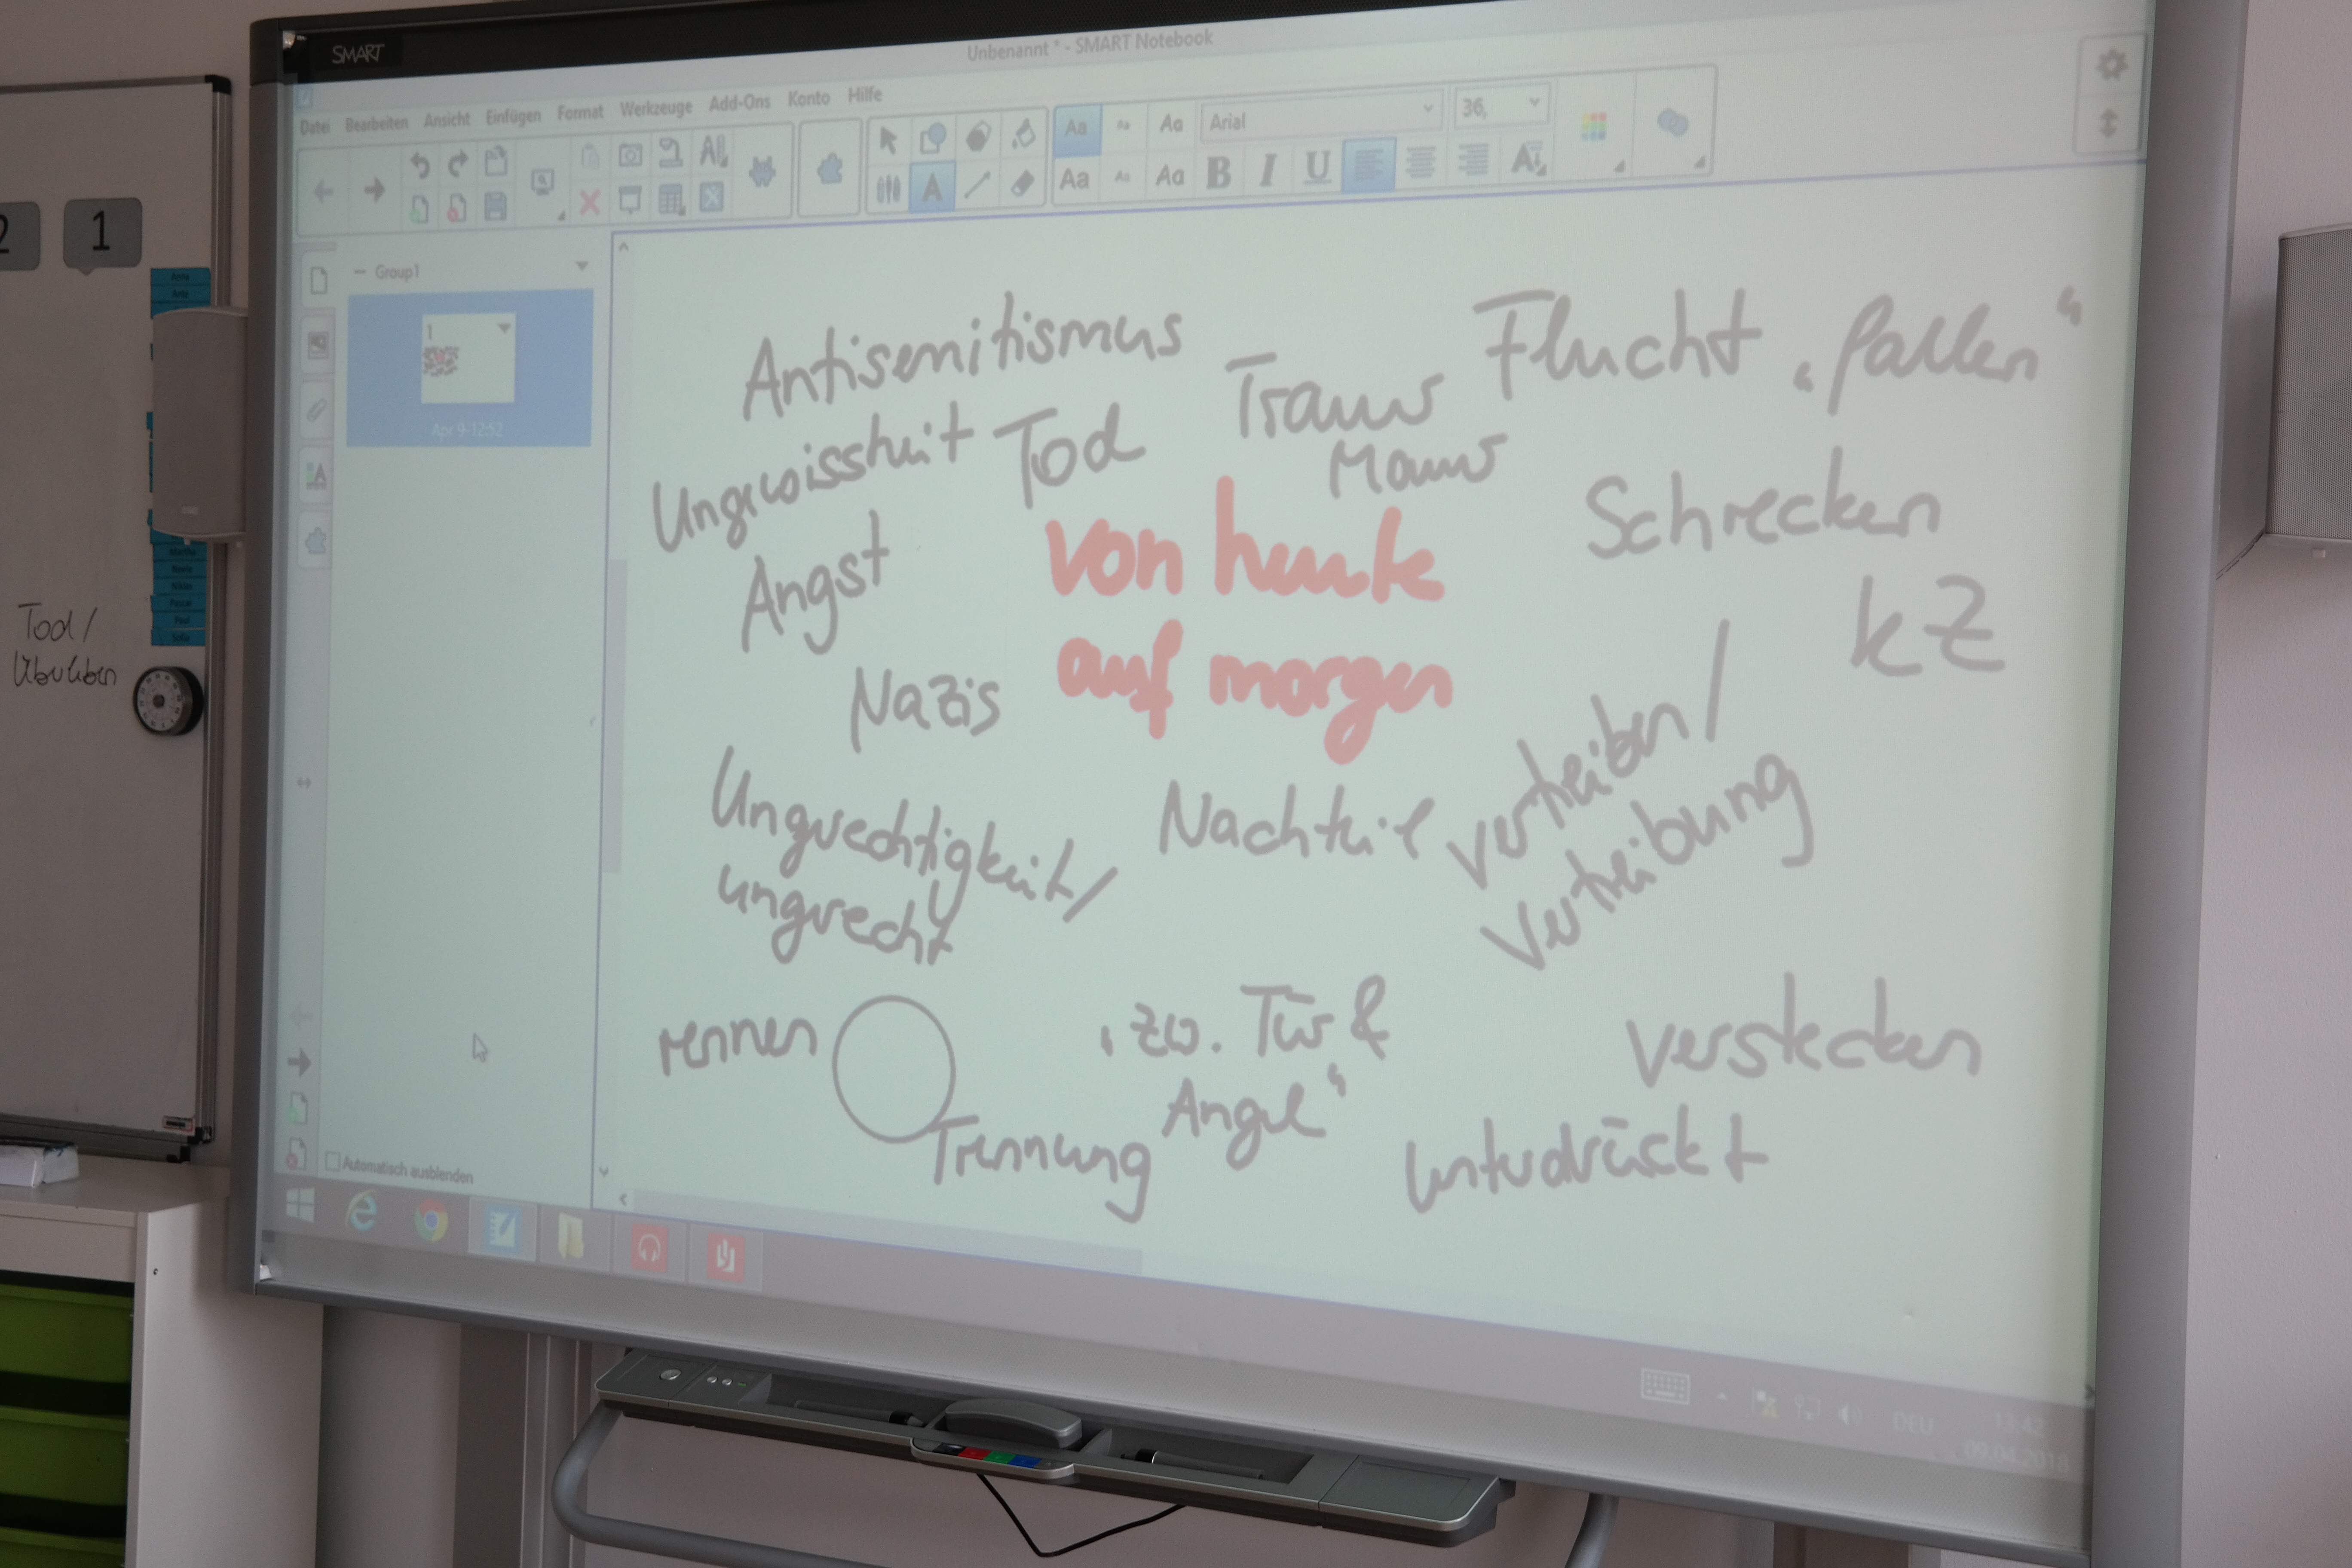 SMART
Unbenannt * - SMART Notebook
Datei Bearbeiten Ansicht Einfügen Format Werkzeuge Add-Ons Konto Hilfe
Arial
36,
B I U
Group1
1
Apr 9-12:52
Antisemitismus
Flucht „fallen“
Ungewissheit Tod
Schrecken
Angst
von heute
auf morgen
KZ
Nazis
Ungerechtigkeit/
ungerecht
Nachteil
vertreiben/
Vertreibung
rennen
„zw. Tür &
Angel“
verstecken
Trennung
unterdrückt
Automatisch ausblenden
DEU
13:42
09.04.2018
2
1
Martha
Niklas
Pascal
Paul
Sofia
Tod/
Überleben